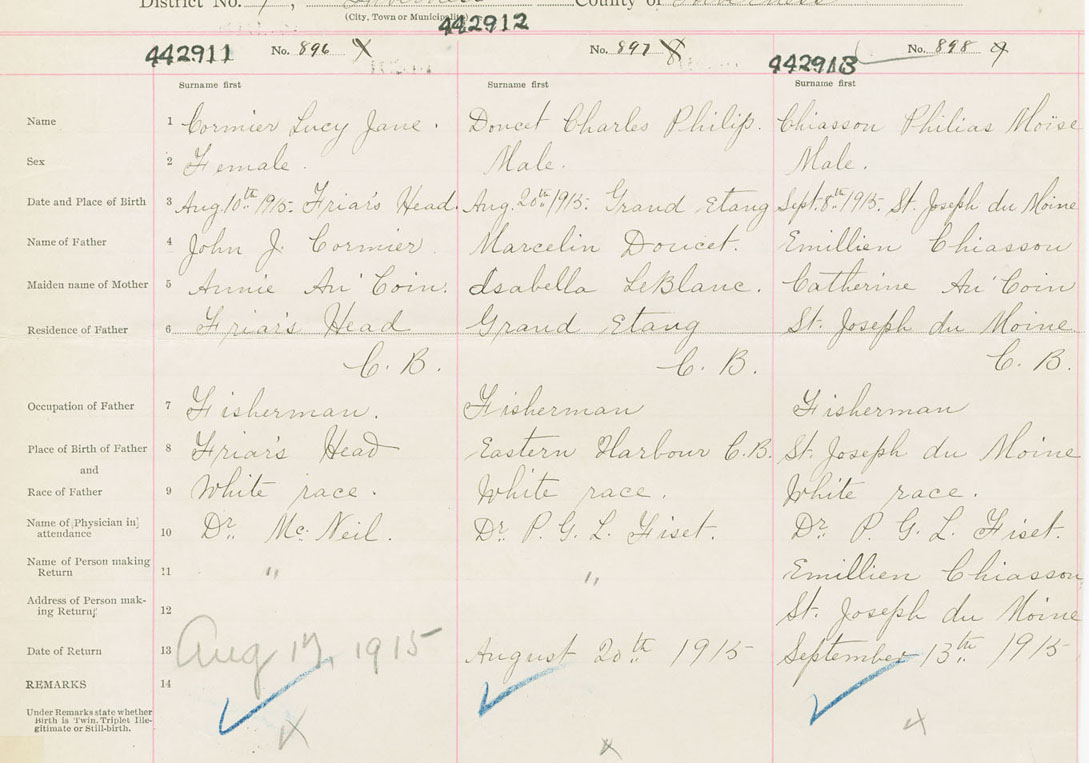 District No. 7, Inverness County of Inverness
(City, Town or Municipality)
442911 No. 896 442912 No. 897 442913 No. 898
Surname first Surname first Surname first
Name 1 Cormier Lucy Jane. Doucet Charles Philip. Chiasson Philias Moïse
Sex 2 Female. Male. Male.
Date and Place of Birth 3 Aug. 10th 1915. Friar's Head. Aug. 20th 1915. Grand Etang Sept. 8th 1915. St. Joseph du Moine
Name of Father 4 John J. Cormier Marcelin Doucet. Emillien Chiasson
Maiden name of Mother 5 Annie Au'Coin. Isabella LeBlanc. Catherine Au'Coin
Residence of Father 6 Friar's Head Grand Etang St. Joseph du Moine
C. B. C. B. C. B.
Occupation of Father 7 Fisherman. Fisherman Fisherman
Place of Birth of Father 8 Friar's Head Eastern Harbour C.B. St. Joseph du Moine
and
Race of Father 9 White race. White race. White race.
Name of [Physician in]
attendance 10 Dr. Mc.Neil. Dr. P. G. L. Fiset. Dr. P. G. L. Fiset.
Name of Person making
Return 11 " " Emillien Chiasson
Address of Person mak-
ing Return; 12 St. Joseph du Moine
Date of Return 13 Aug 17, 1915 August 20th 1915 September 13th 1915
REMARKS 14
Under Remarks state whether
Birth is Twin, Triplet Ille-
gitimate or Still-birth.